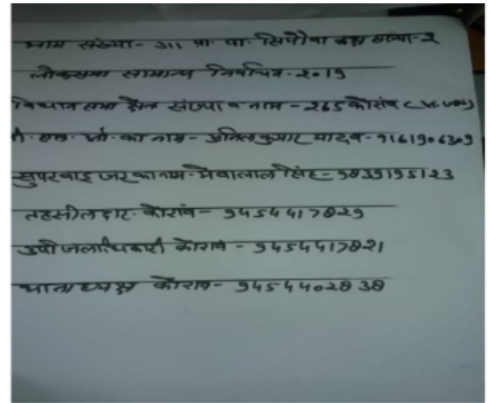 भाग संख्या- 311 प्रा. पा. सिपौवा कक्ष संख्या-2
लोकसभा सामान्य निर्वाचन-2019
विधान सभा क्षेत्र संख्या व नाम - 265 कोरांव
बी. एल. ओ. का नाम- अनिल कुमार यादव- 9161906309
सुपरवाइजर का नाम- मेवालाल सिंह- 9839195123
तहसीलदार- कोरांव- 9454417829
उपजिलाधिकारी कोरांव - 9454417821
थानाध्यक्ष कोरांव- 9454402838